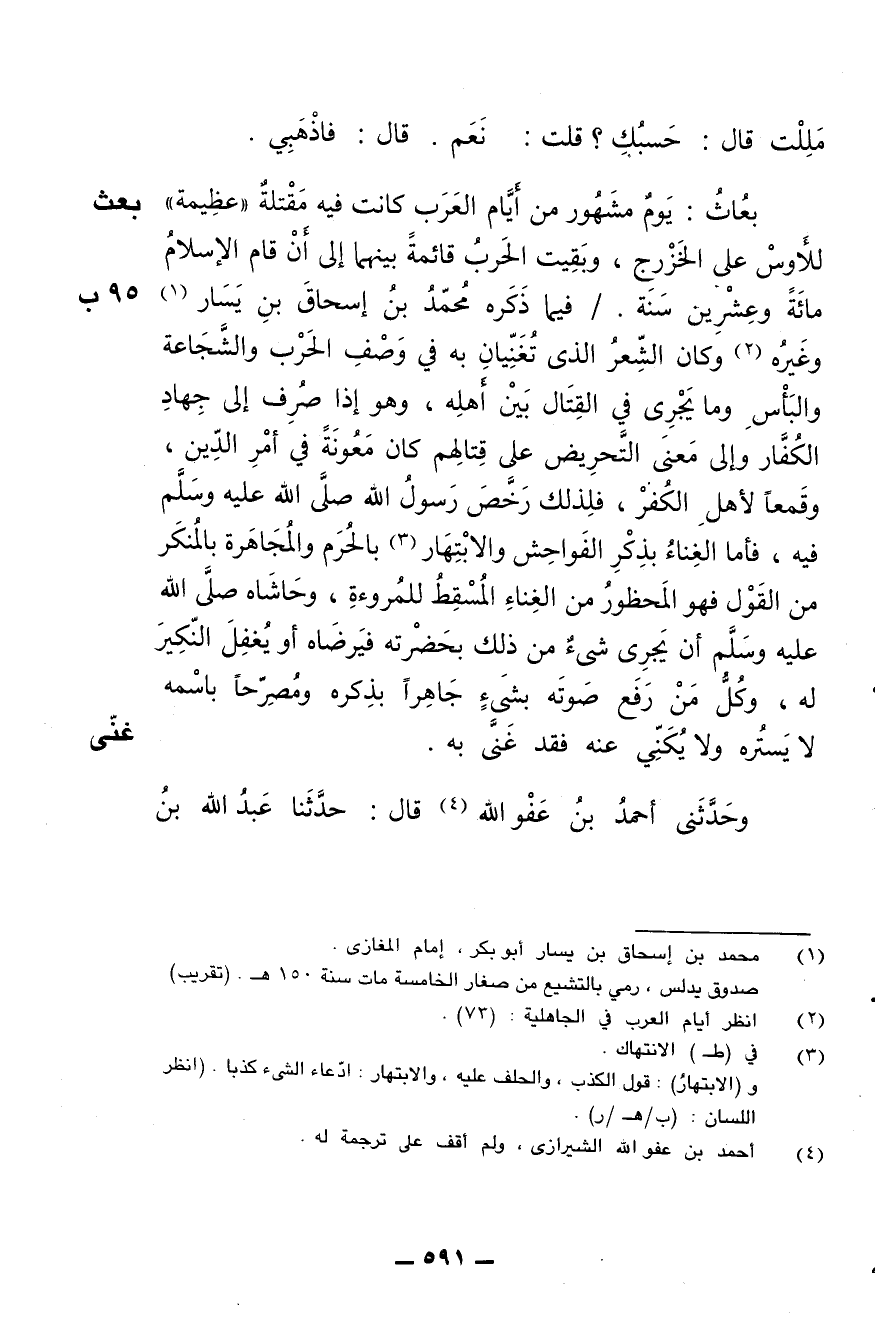 مَلِلْت قال : حَسبُكِ ؟ قلت : نَعَم . قال : فاذْهَبِي .
بعُاثُ : يَومٌ مشَهُور من أيَّام العَرَب كانت فيه مَقْتلةٌ «عظِيمة» بعث
للأَوسْ على الخَزْرج ، وبَقِيت الحَربُ قائمةً بينهما إلى أنْ قام الإسلامُ
مائَةً وعِشْرِين سَنَة . / فيما ذَكَره مُحمّدُ بنُ إسحاقَ بنِ يَسَار (١) ٩٥ ب
وغَيرُه (٢) وكان الشِّعرُ الذى تُغَنِّيانِ به في وَصْفِ الحَرْب والشَّجَاعة
والبَأْسِ وما يَجْرِى في القِتَال بَيْن أَهلِه ، وهو إذا صُرِف إلى جِهادِ
الكُفَّار وإلى مَعنىَ التَّحرِيض على قِتالِهم كان مَعُونَةً في أمْرِ الدِّين ،
وقَمعاً لأهلِ الكُفرْ ، فلِذلك رَخَّصَ رَسولُ الله صلَّى الله عليه وسَلَّم
فيه ، فأما الغِناءُ بذِكْرِ الفَواحِش والابْتِهَار (٣) بالحُرَم والمُجَاهَرة بالمُنكَر
من القَوْل فهو المَحظورُ من الغِناءِ المُسْقِطُ للمُروءةِ ، وحَاشَاه صلَّى الله
عليه وسَلَّم أن يَجرِى شىءٌ من ذلك بحَضْرته فيَرضَاه أو يُغفِلَ النَّكِيرَ
له ، وكُلُّ مَنْ رَفَع صَوتَه بشَىءٍ جَاهِراً بذِكره ومُصرِّحاً باسْمه
لا يَستُره ولا يُكَنِّي عنه فقد غَنَّى به . غنّى
وحَدَّثَنى أحمدُ بنُ عَفْو الله (٤) قال : حدَّثَنا عَبدُ الله بنُ
(١) محمد بن إسحاق بن يسار أبو بكر ، إمام المغازى .
صدوق يدلس ، رمي بالتشيع من صغار الخامسة مات سنة ١٥٠ هـ . (تقريب)
(٢) انظر أيام العرب في الجاهلية : (٧٣) .
(٣) في (طـ) الانتهاك .
و (الابتهارُ) : قول الكذب ، والحلف عليه ، والابتهار : ادّعاء الشىء كذبا . (انظر
اللسان : (ب/هـ /ر) .
(٤) أحمد بن عفو الله الشيرازى ، ولم أقف على ترجمة له .
ــ ٥٩١ ــ